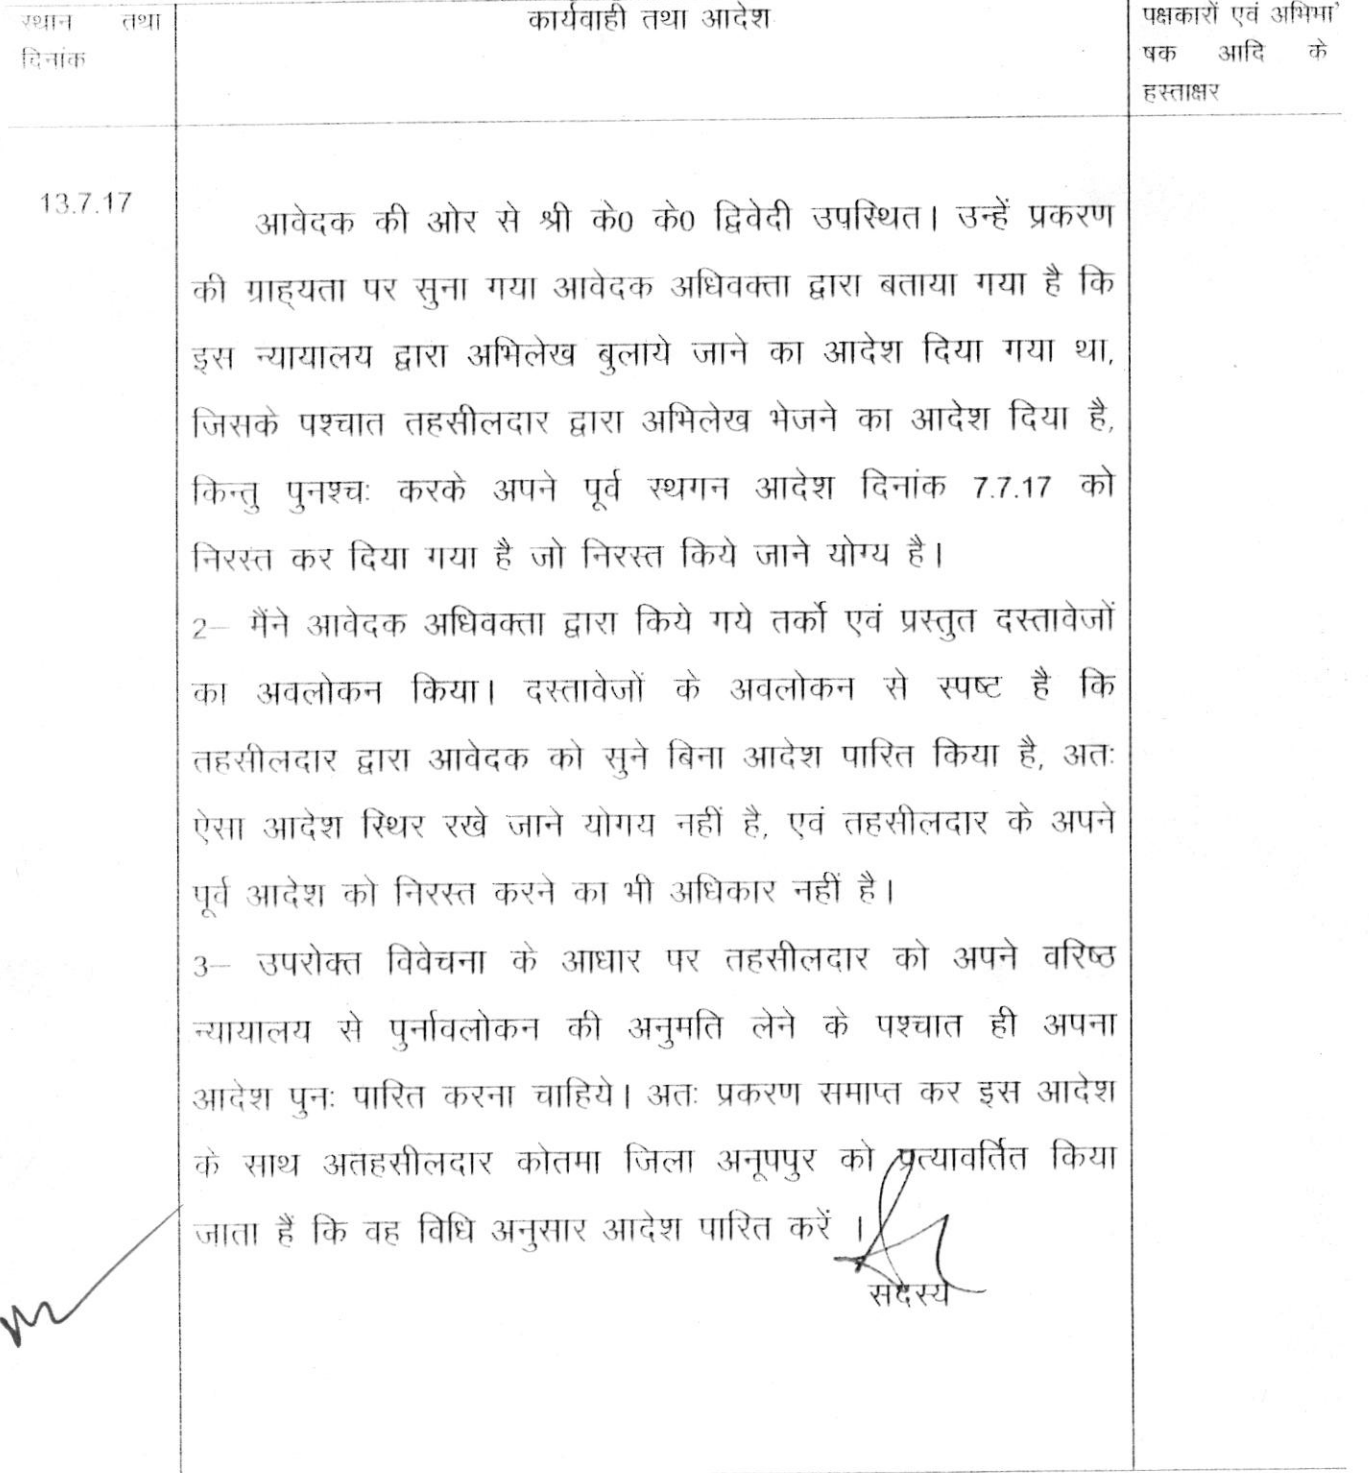 स्थान तथा
दिनांक
कार्यवाही तथा आदेश
पक्षकारों एवं अभिभा
षक आदि के
हस्ताक्षर
13.7.17
आवेदक की ओर से श्री के0 के0 द्विवेदी उपस्थित। उन्हें प्रकरण
की ग्राह्यता पर सुना गया आवेदक अधिवक्ता द्वारा बताया गया है कि
इस न्यायालय द्वारा अभिलेख बुलाये जाने का आदेश दिया गया था,
जिसके पश्चात तहसीलदार द्वारा अभिलेख भेजने का आदेश दिया है,
किन्तु पुनश्चः करके अपने पूर्व स्थगन आदेश दिनांक 7.7.17 को
निरस्त कर दिया गया है जो निरस्त किये जाने योग्य है।
2– मैंने आवेदक अधिवक्ता द्वारा किये गये तर्को एवं प्रस्तुत दस्तावेजों
का अवलोकन किया। दस्तावेजों के अवलोकन से स्पष्ट है कि
तहसीलदार द्वारा आवेदक को सुने बिना आदेश पारित किया है, अतः
ऐसा आदेश स्थिर रखे जाने योगय नहीं है, एवं तहसीलदार के अपने
पूर्व आदेश को निरस्त करने का भी अधिकार नहीं है।
3– उपरोक्त विवेचना के आधार पर तहसीलदार को अपने वरिष्ठ
न्यायालय से पुर्नावलोकन की अनुमति लेने के पश्चात ही अपना
आदेश पुनः पारित करना चाहिये। अतः प्रकरण समाप्त कर इस आदेश
के साथ अतहसीलदार कोतमा जिला अनूपपुर को प्रत्यावर्तित किया
जाता हैं कि वह विधि अनुसार आदेश पारित करें ।
सदस्य